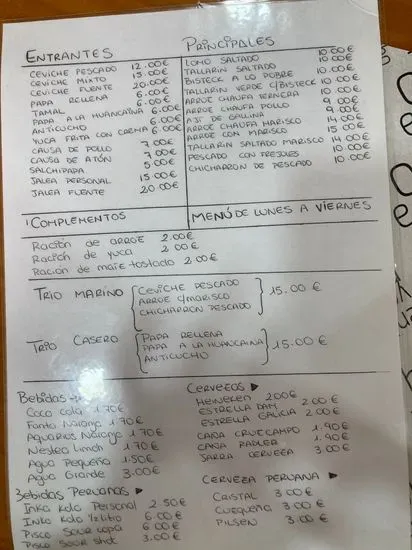 ENTRANTES
CEVICHE PESCADO 12.00€
CEVICHE MIXTO 15.00€
CEVICHE FUENTE 20.00€
PAPA RELLENA 6.00€
TAMAL 6.00€
PAPA A LA HUANCAINA 6.00€
ANTICUCHO 6.00€
YUCA FRITA CON CARNE 6.00€
CAUSA DE POLLO 7.00€
CAUSA DE ATÓN 7.00€
SALCHIPAPA 5.00€
JALEA PERSONAL 15.00€
JALEA FUENTE 20.00€
PRINCIPALES
LOMO SALTADO 10.00€
TALLARIN SALTADO 10.00€
BISTECK A LO POBRE 10.00€
TALLARIN VERDE C/BISTECK 10.00€
ARROZ CHAUFA TERNERA 10.00€
ARROZ CHAUFA POLLO 9.00€
AJI DE GALLINA 9.00€
ARROZ CHAUFA MARISCO 14.00€
ARROZ CON MARISCO 15.00€
TALLARIN SALTADO MARISCO 14.00€
PESCADO CON FREJOLES 10.00€
CHICHARRON DE PESCADO 10.00€
COMPLEMENTOS
Ración de arroz 2.00€
Ración de yuca 2.00€
Ración de maiz tostado 2.00€
MENÚ DE LUNES A VIERNES
TRIO MARINO
CEVICHE PESCADO
ARROZ C/MARISCO
CHICHARRON PESCADO
15.00 €
TRIO CASERO
PAPA RELLENA
PAPA A LA HUANCAINA
ANTICUCHO
15.00 €
Bebidas
Coca cola 1.70€
Fanta Naranja 1.70€
Aquarius Naranja 1.70€
Nestea Limon 1.70€
Agua Pequeña 1.50€
Agua Grande 3.00€
Bebidas Peruanas
Inka Kola Personal 2.50€
Inka Kola 1/2 litro 6.00€
Pisco Sour copa 6.00€
Pisco Sour shot 3.00€
CERVEZAS
HEINEKEN 2.00€
ESTRELLA DAM 2.00€
ESTRELLA GALICIA 2.00€
CAÑA CRUZCAMPO 1.90€
CAÑA RADLER 1.90€
JARRA CERVEZA 3.00€
CERVEZA PERUANA
CRISTAL 3.00€
CUZQUEÑA 3.00€
PILSEN 3.00€